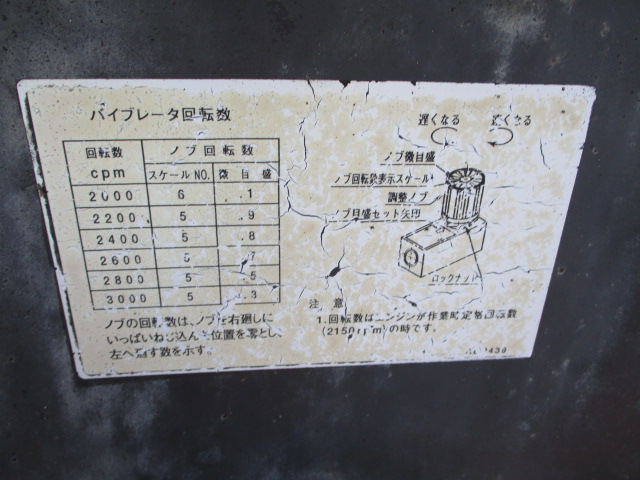 バイブレータ回転数
回転数 cpm ノブ回転数
スケールNO. 微目盛
2000 6 .1
2200 5 .9
2400 5 .8
2600 5 .7
2800 5 .5
3000 5 .3
ノブの回転数は、ノブを右廻しに
いっぱいねじ込んだ位置を零とし、
左へ廻す数を示す。
遅くなる 速くなる
ノブ微目盛
ノブ回転数表示スケール
調整ノブ
ノブ目盛セット矢印
ロックナット
注意
1.回転数はエンジンが作業時定格回転数
(2150rpm)の時です。